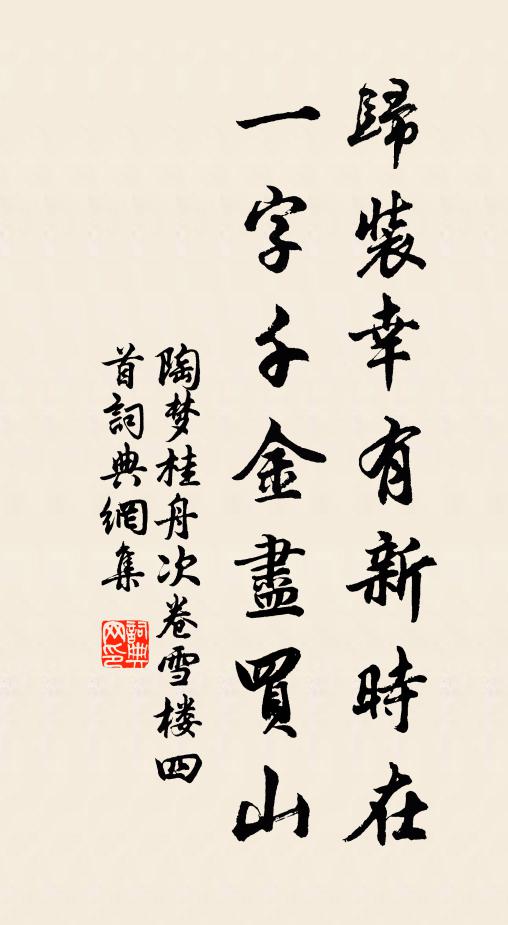 歸裝幸有新時在
一字千金盡買山
陶梦桂舟次卷雪楼四
首詞典網集
詞典网印